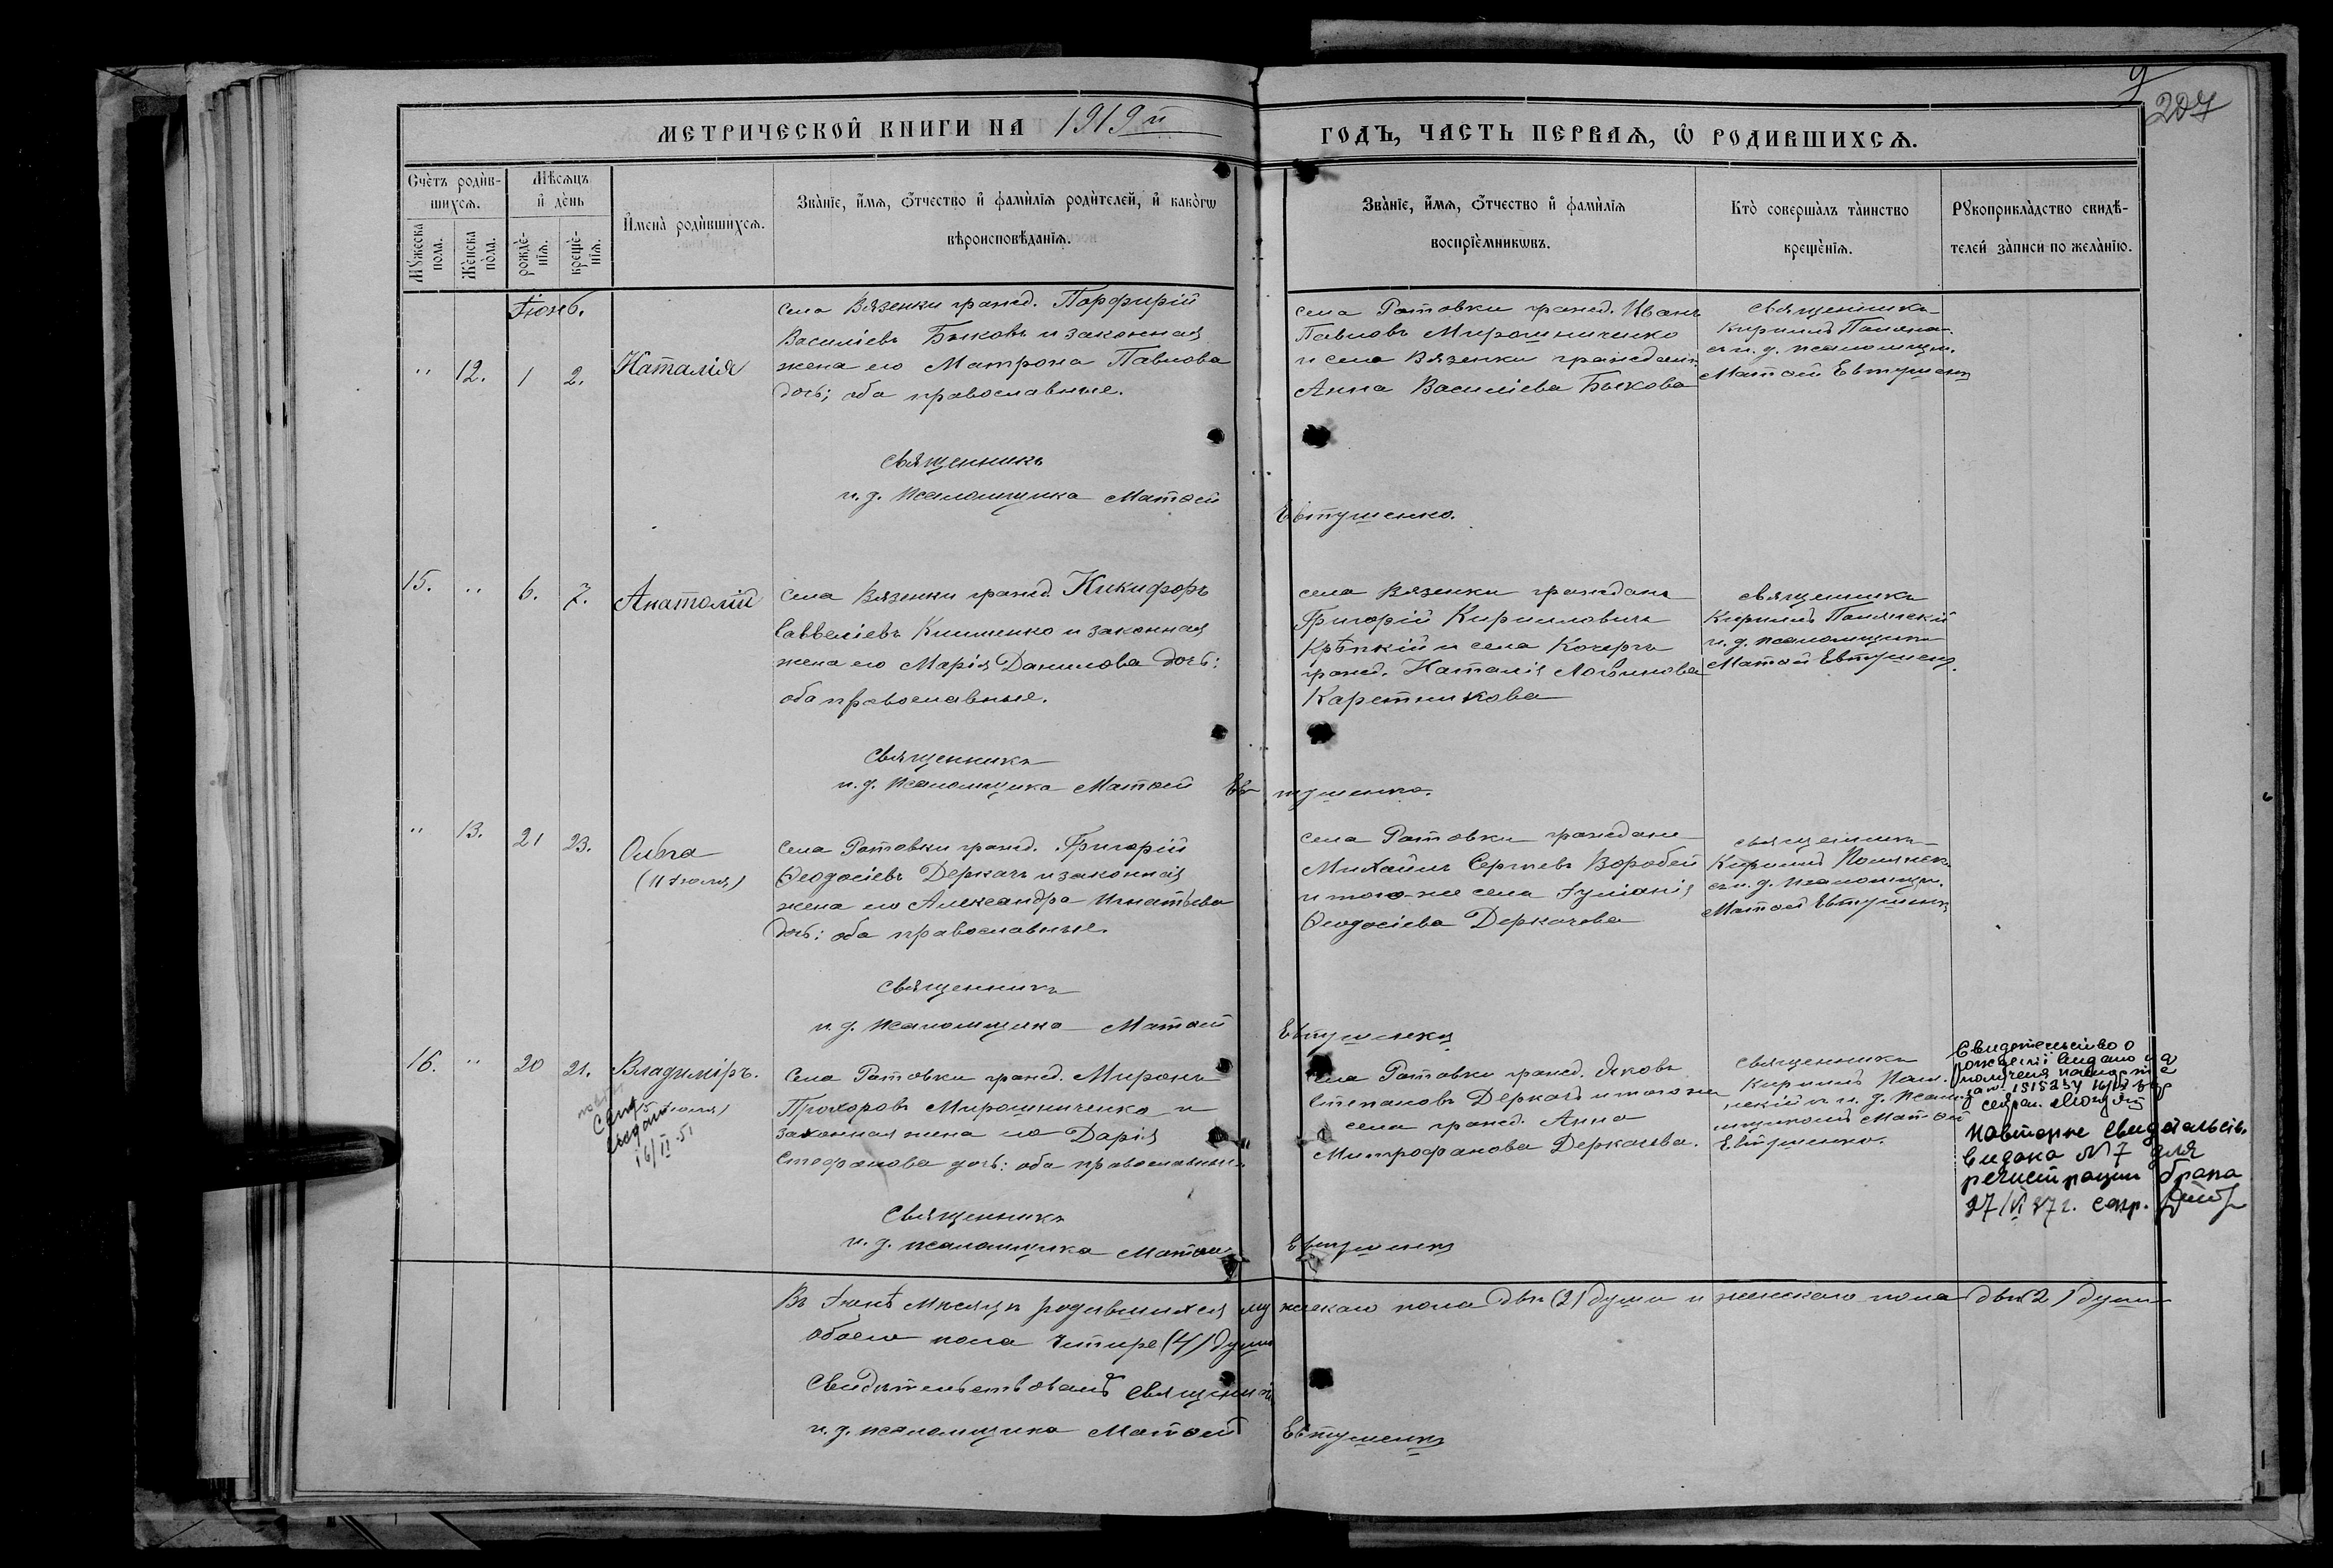 9
227
МЕТРИЧЕСКОЙ КНИГИ НА 1919й ГОДЪ, ЧАСТЬ ПЕРВАЯ, Ѡ РОДИВШИХСЯ.
Счетъ родив-
шихся.
Мѣсяцъ
и день
Мужеска
пола.
Женска
пола.
рожде-
нія.
креще-
нія.
Имена родившихся.
Званіе, имя, отчество и фамилія родителей, и какогѡ
вѣроисповѣданія.
Званіе, имя, отчество и фамилія
воспріемникѡвъ.
Кто совершалъ таинство
крещенія.
Рукоприкладство свидѣ-
телей записи по желанію.
Іюнь.
" 12. 1 2. Наталія
Села Вязенки гражд. Порфирій
Василіевъ Быковъ и законная
жена его Матрона Павлова
дочь; оба православные.
села Ротовки гражд. Иванъ
Павловъ Мирошниченко
и села Вязенки граждан.
Анна Василіева Быкова
священникъ
Кириллъ
и. д. псаломщ.
Матѳей Евтушенко
Священникъ
и. д. псаломщика Матѳей Евтушенко.
15. " 6. 7. Анатолій
Села Вязенки гражд. Никифоръ
Савввліевъ Клименко и законная
жена его Марія Данилова дочь:
оба православные.
села Вязенки гражданъ
Григорій Кирилловичъ
Крѣпкій и села Кочерги
гражд. Наталія Логинова
Каретникова
священникъ
Кириллъ Полянскій
и. д. псаломщика
Матѳей Евтушенко.
Священникъ
и. д. псаломщика Матѳей Евтушенко.
" 13. 21 23. Ольга
(11 Іюля)
Села Ротовки гражд. Григорій
Ѳеодосіевъ Деркачъ и законная
жена его Александра Игнатьева
дочь: оба православные.
Села Ротовки граждане
Михаилъ Сергѣевъ Воробей
и того-же села Іуліанія
Ѳеодосіева Деркачова
священникъ
Кириллъ Полянск.
и. д. псаломщ.
Матѳей Евтушенко
Священникъ
и. д. псаломщика Матѳей Евтушенко
16. " 20 21. Владиміръ.
Іюля)
16/II-51
Села Ротовки гражд. Миронъ
Прохоровъ Мирошниченко и
законная жена его Дарія
Стефанова дочь: оба православные.
Села Ротовки гражд. Яковъ
Степановъ Деркачъ и того же
села гражд. Анна
Митрофанова Деркачева.
Священникъ
Кириллъ Полян-
скій и и. д. псалом-
щикомъ Матѳей
Евтушенко.
Свидетельство о
Повторне свидетельств.
видано №7 для
регистрации брака
27/VI 37г. секр.
Священникъ
и. д. псаломщика Матѳей Евтушенко
Въ Іюнѣ мѣсяцѣ родившихся мужескаго пола двѣ (2) души и женскаго пола двѣ (2) души
обоего пола четыре (4) души
Свидѣтельствовалъ Священникъ
и. д. псаломщика Матѳей Евтушенко